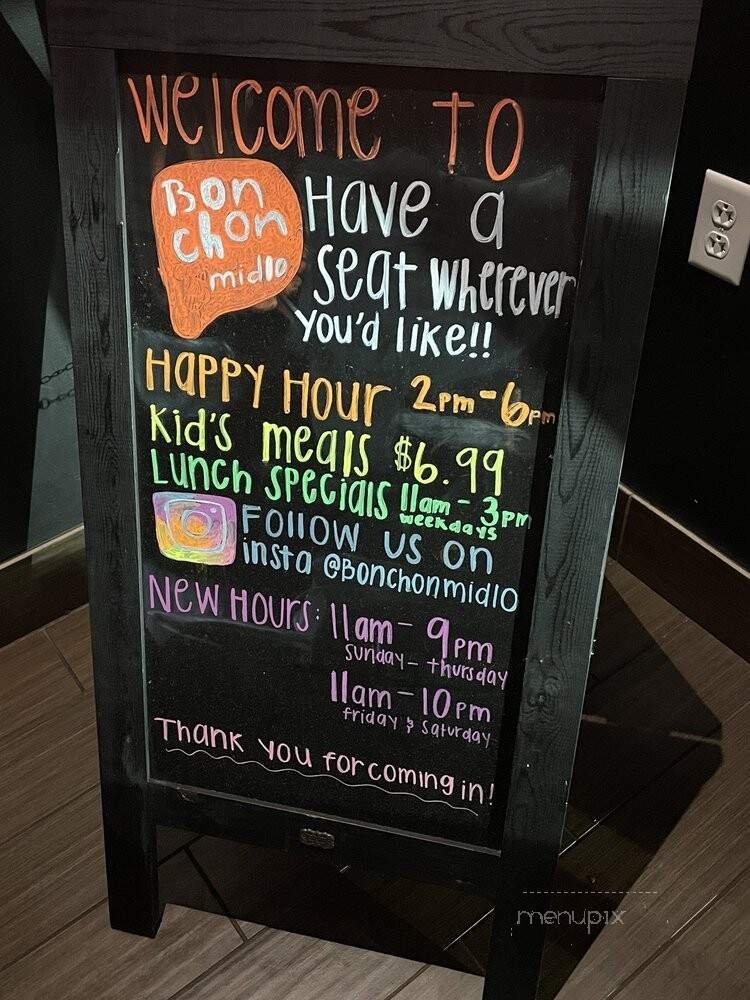 Welcome to
Bon
Chon
midlo
Have a
seat wherever
you'd like!!
Happy Hour 2pm-6pm
Kid's meals $6.99
Lunch specials 11am - 3pm
weekdays
Follow us on
insta @Bonchonmidlo
New Hours: 11am - 9pm
Sunday - thursday
11am - 10pm
friday & saturday
Thank you for coming in!
menupix